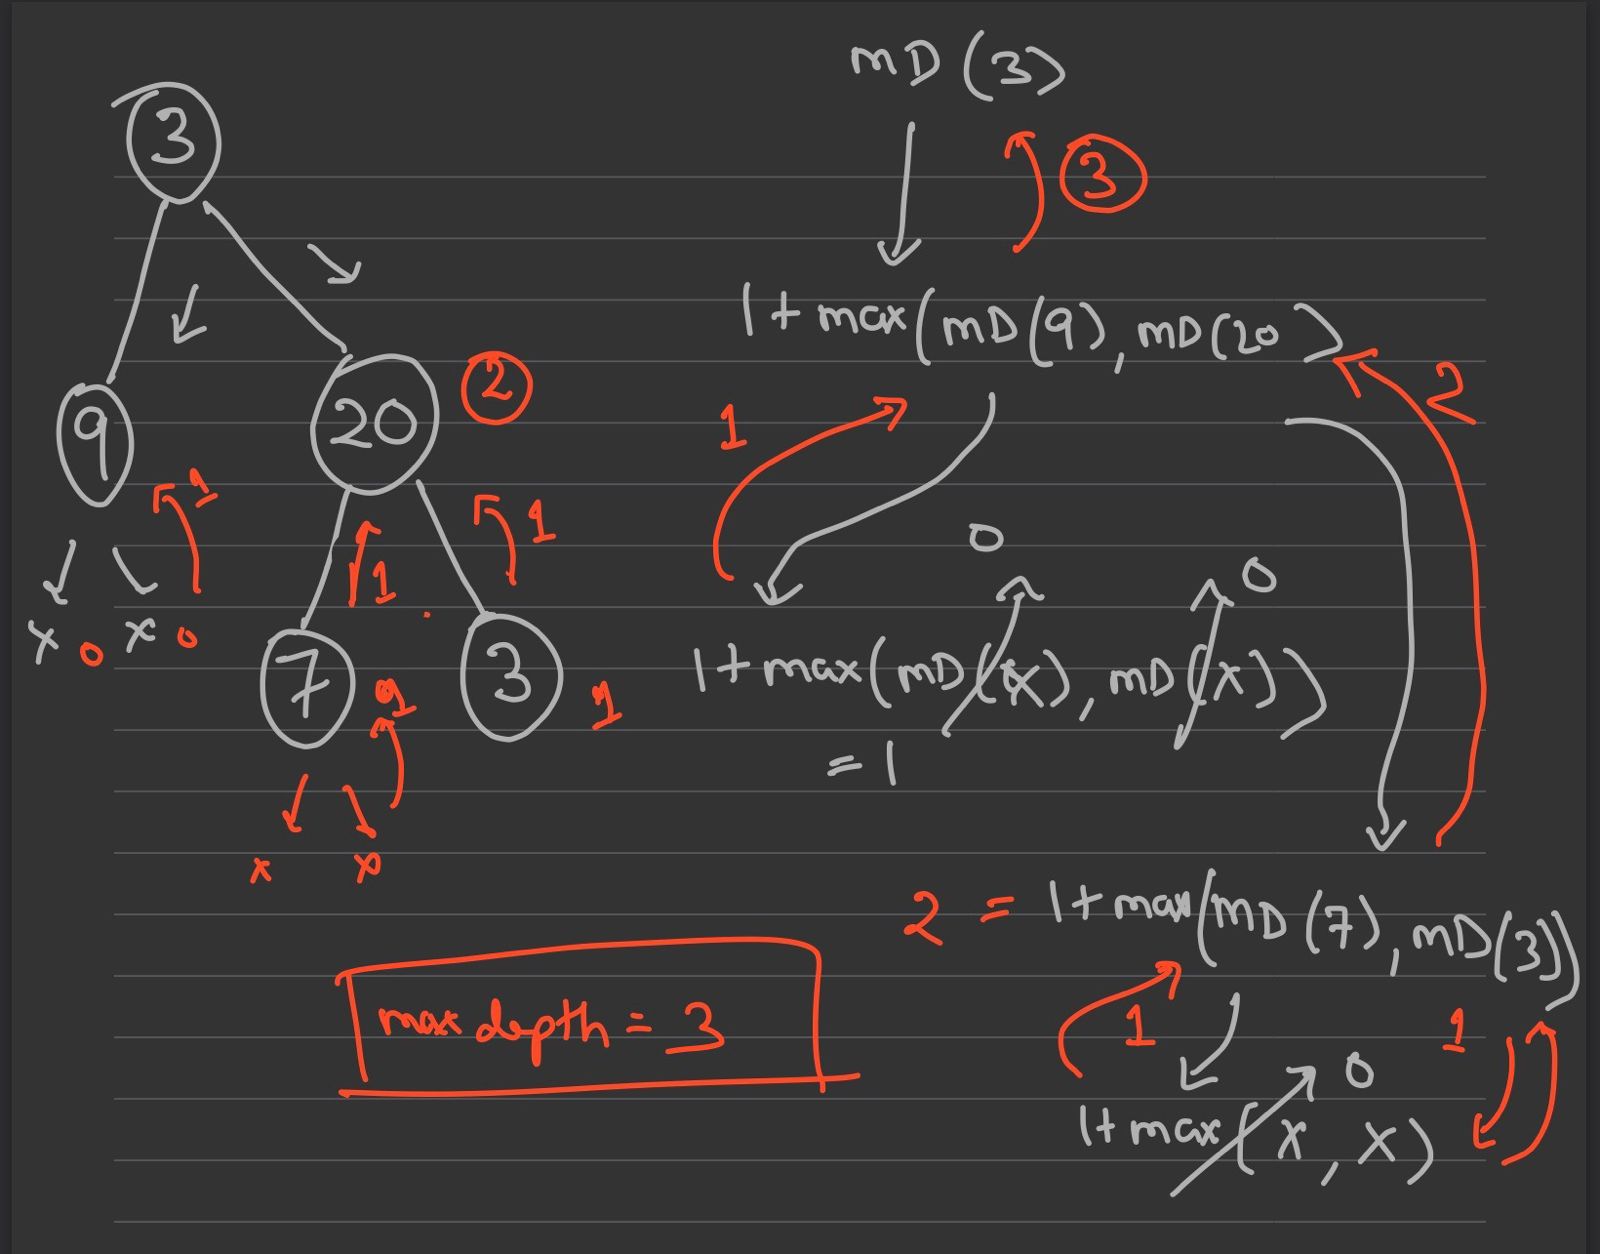 mD(3)
3
3
1+max(mD(9), mD(20)
2
9
20
2
1
1
1
0
0
1
x 0 x 0
7
1
3
1
1+max(mD(x), mD(x))
= 1
x x
2 = 1+max(mD(7), mD(3))
max depth = 3
1
1
0
1+max(x, x)